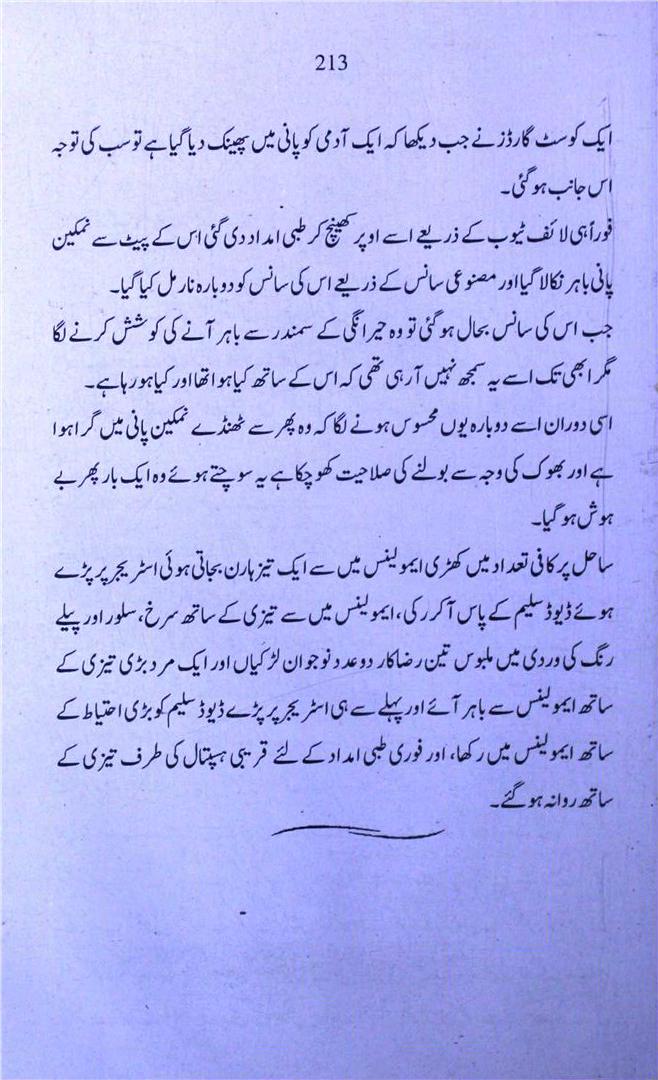 213
ایک کوسٹ گارڈز نے جب دیکھا کہ ایک آدمی کو پانی میں پھینک دیا گیا ہے تو سب کی توجہ
اس جانب ہو گئی۔
فوراً ہی لائف ٹیوب کے ذریعے اسے اوپر کھینچ کر طبی امداد دی گئی اس کے پیٹ سے نمکین
پانی باہر نکالا گیا اور مصنوعی سانس کے ذریعے اس کی سانس کو دوبارہ نارمل کیا گیا۔
جب اس کی سانس بحال ہو گئی تو وہ حیرانگی کے سمندر سے باہر آنے کی کوشش کرنے لگا
مگر ابھی تک اسے یہ سمجھ نہیں آرہی تھی کہ اس کے ساتھ کیا ہوا تھا اور کیا ہو رہا ہے۔
اسی دوران اسے دوبارہ یوں محسوس ہونے لگا کہ وہ پھر سے ٹھنڈے نمکین پانی میں گرا ہوا
ہے اور بھوک کی وجہ سے بولنے کی صلاحیت کھو چکا ہے یہ سوچتے ہوئے وہ ایک بار پھر بے
ہوش ہو گیا۔
ساحل پر کافی تعداد میں کھڑی ایمولینس میں سے ایک تیز ہارن بجاتی ہوئی اسٹریچر پر پڑے
ہوئے ڈیوڈ سلیم کے پاس آ کر رکی، ایمولینس میں سے تیزی کے ساتھ سرخ، سلور اور پیلے
رنگ کی وردی میں ملبوس تین رضاکار دو عدد نوجوان لڑکیاں اور ایک مرد بڑی تیزی کے
ساتھ ایمولینس سے باہر آئے اور پہلے سے ہی اسٹریچر پر پڑے ڈیوڈ سلیم کو بڑی احتیاط کے
ساتھ ایمولینس میں رکھا، اور فوری طبی امداد کے لئے قریبی ہسپتال کی طرف تیزی کے
ساتھ روانہ ہو گئے۔